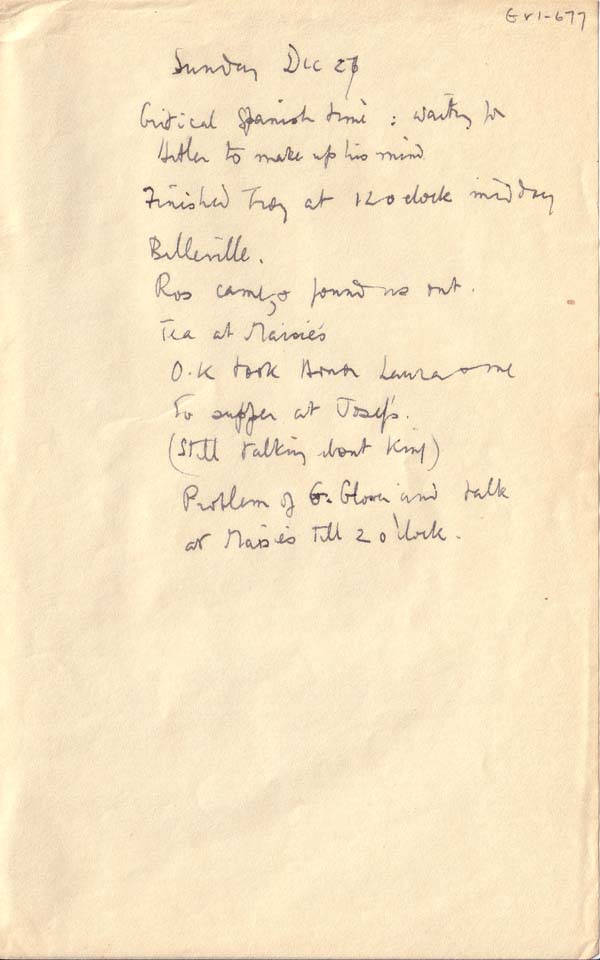 Gr1-677
Sunday Dec 27
Critical Spanish time : waiting for
Hitler to make up his mind
Finished Troy at 12 o clock midday
Belleville.
Ros came, & found us out.
Tea at Maisie's
O.K took Honor Laura & me
to supper at Josef's.
(Still talking about King)
Problem of G. Glover and talk
at Maisie's till 2 o'clock.